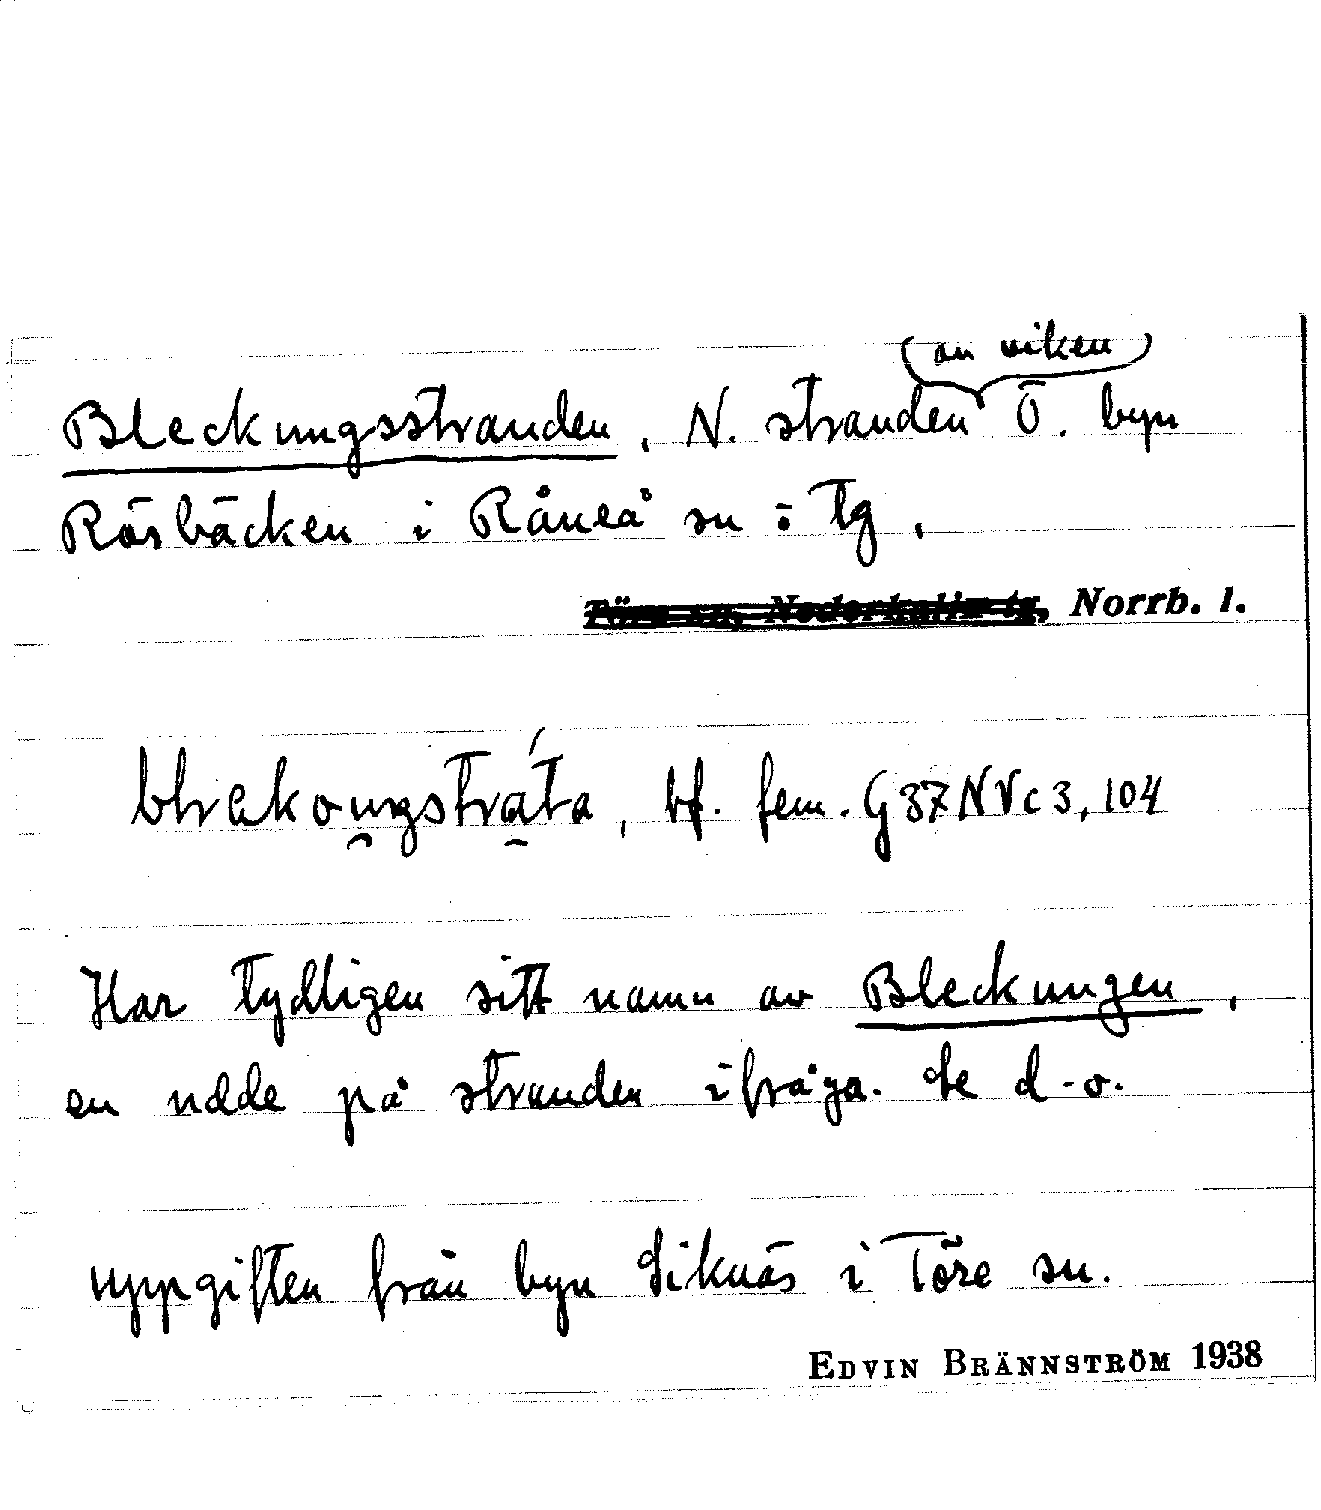 (av viken)
Bleckungsstranden, N. stranden Ö. byn
Rösbäcken i Råneå sn o tg,
Töre sn, Nederkalix tg, Norrb. l.
bf. fem. G37NVc3,104
Har tydligen sitt namn av Bleckungen,
en udde på stranden ifråga. Se d.o.
uppgiften från byn Siknäs i Töre sn.
EDVIN BRÄNNSTRÖM 1938